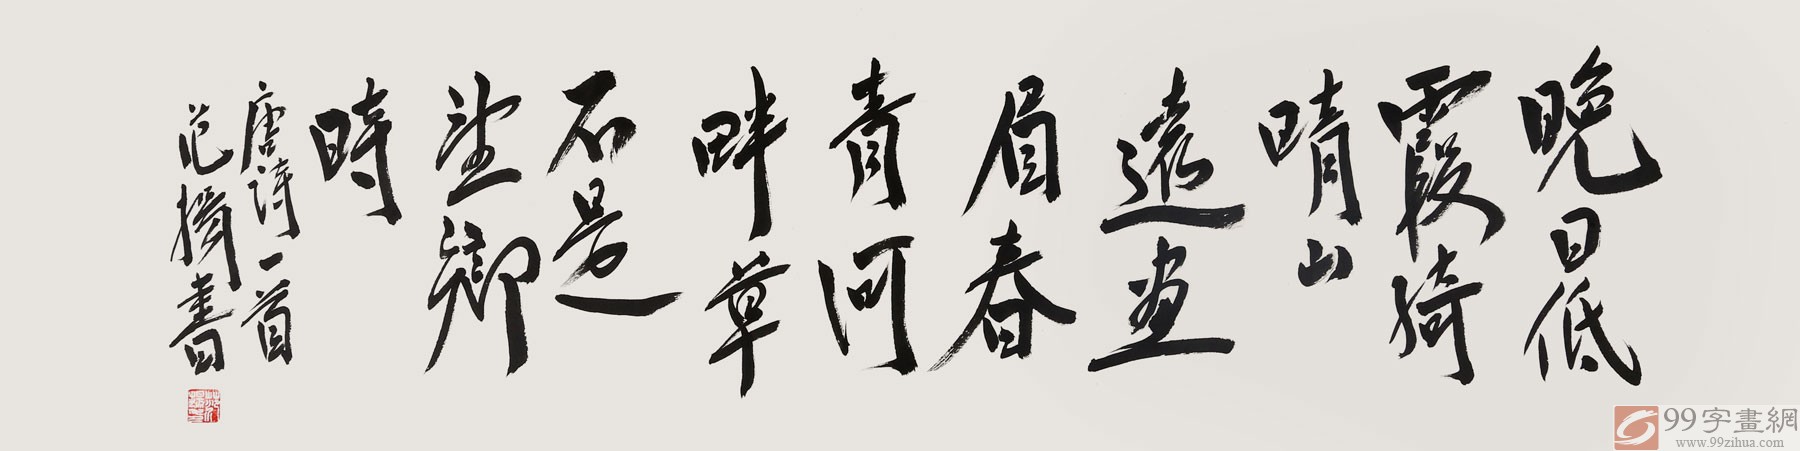 晚日低
霞綺
晴山
遠畫
眉春
青河
畔草
不是
望鄉
時
唐詩一首
范書
99字畫網
www.99zihua.com